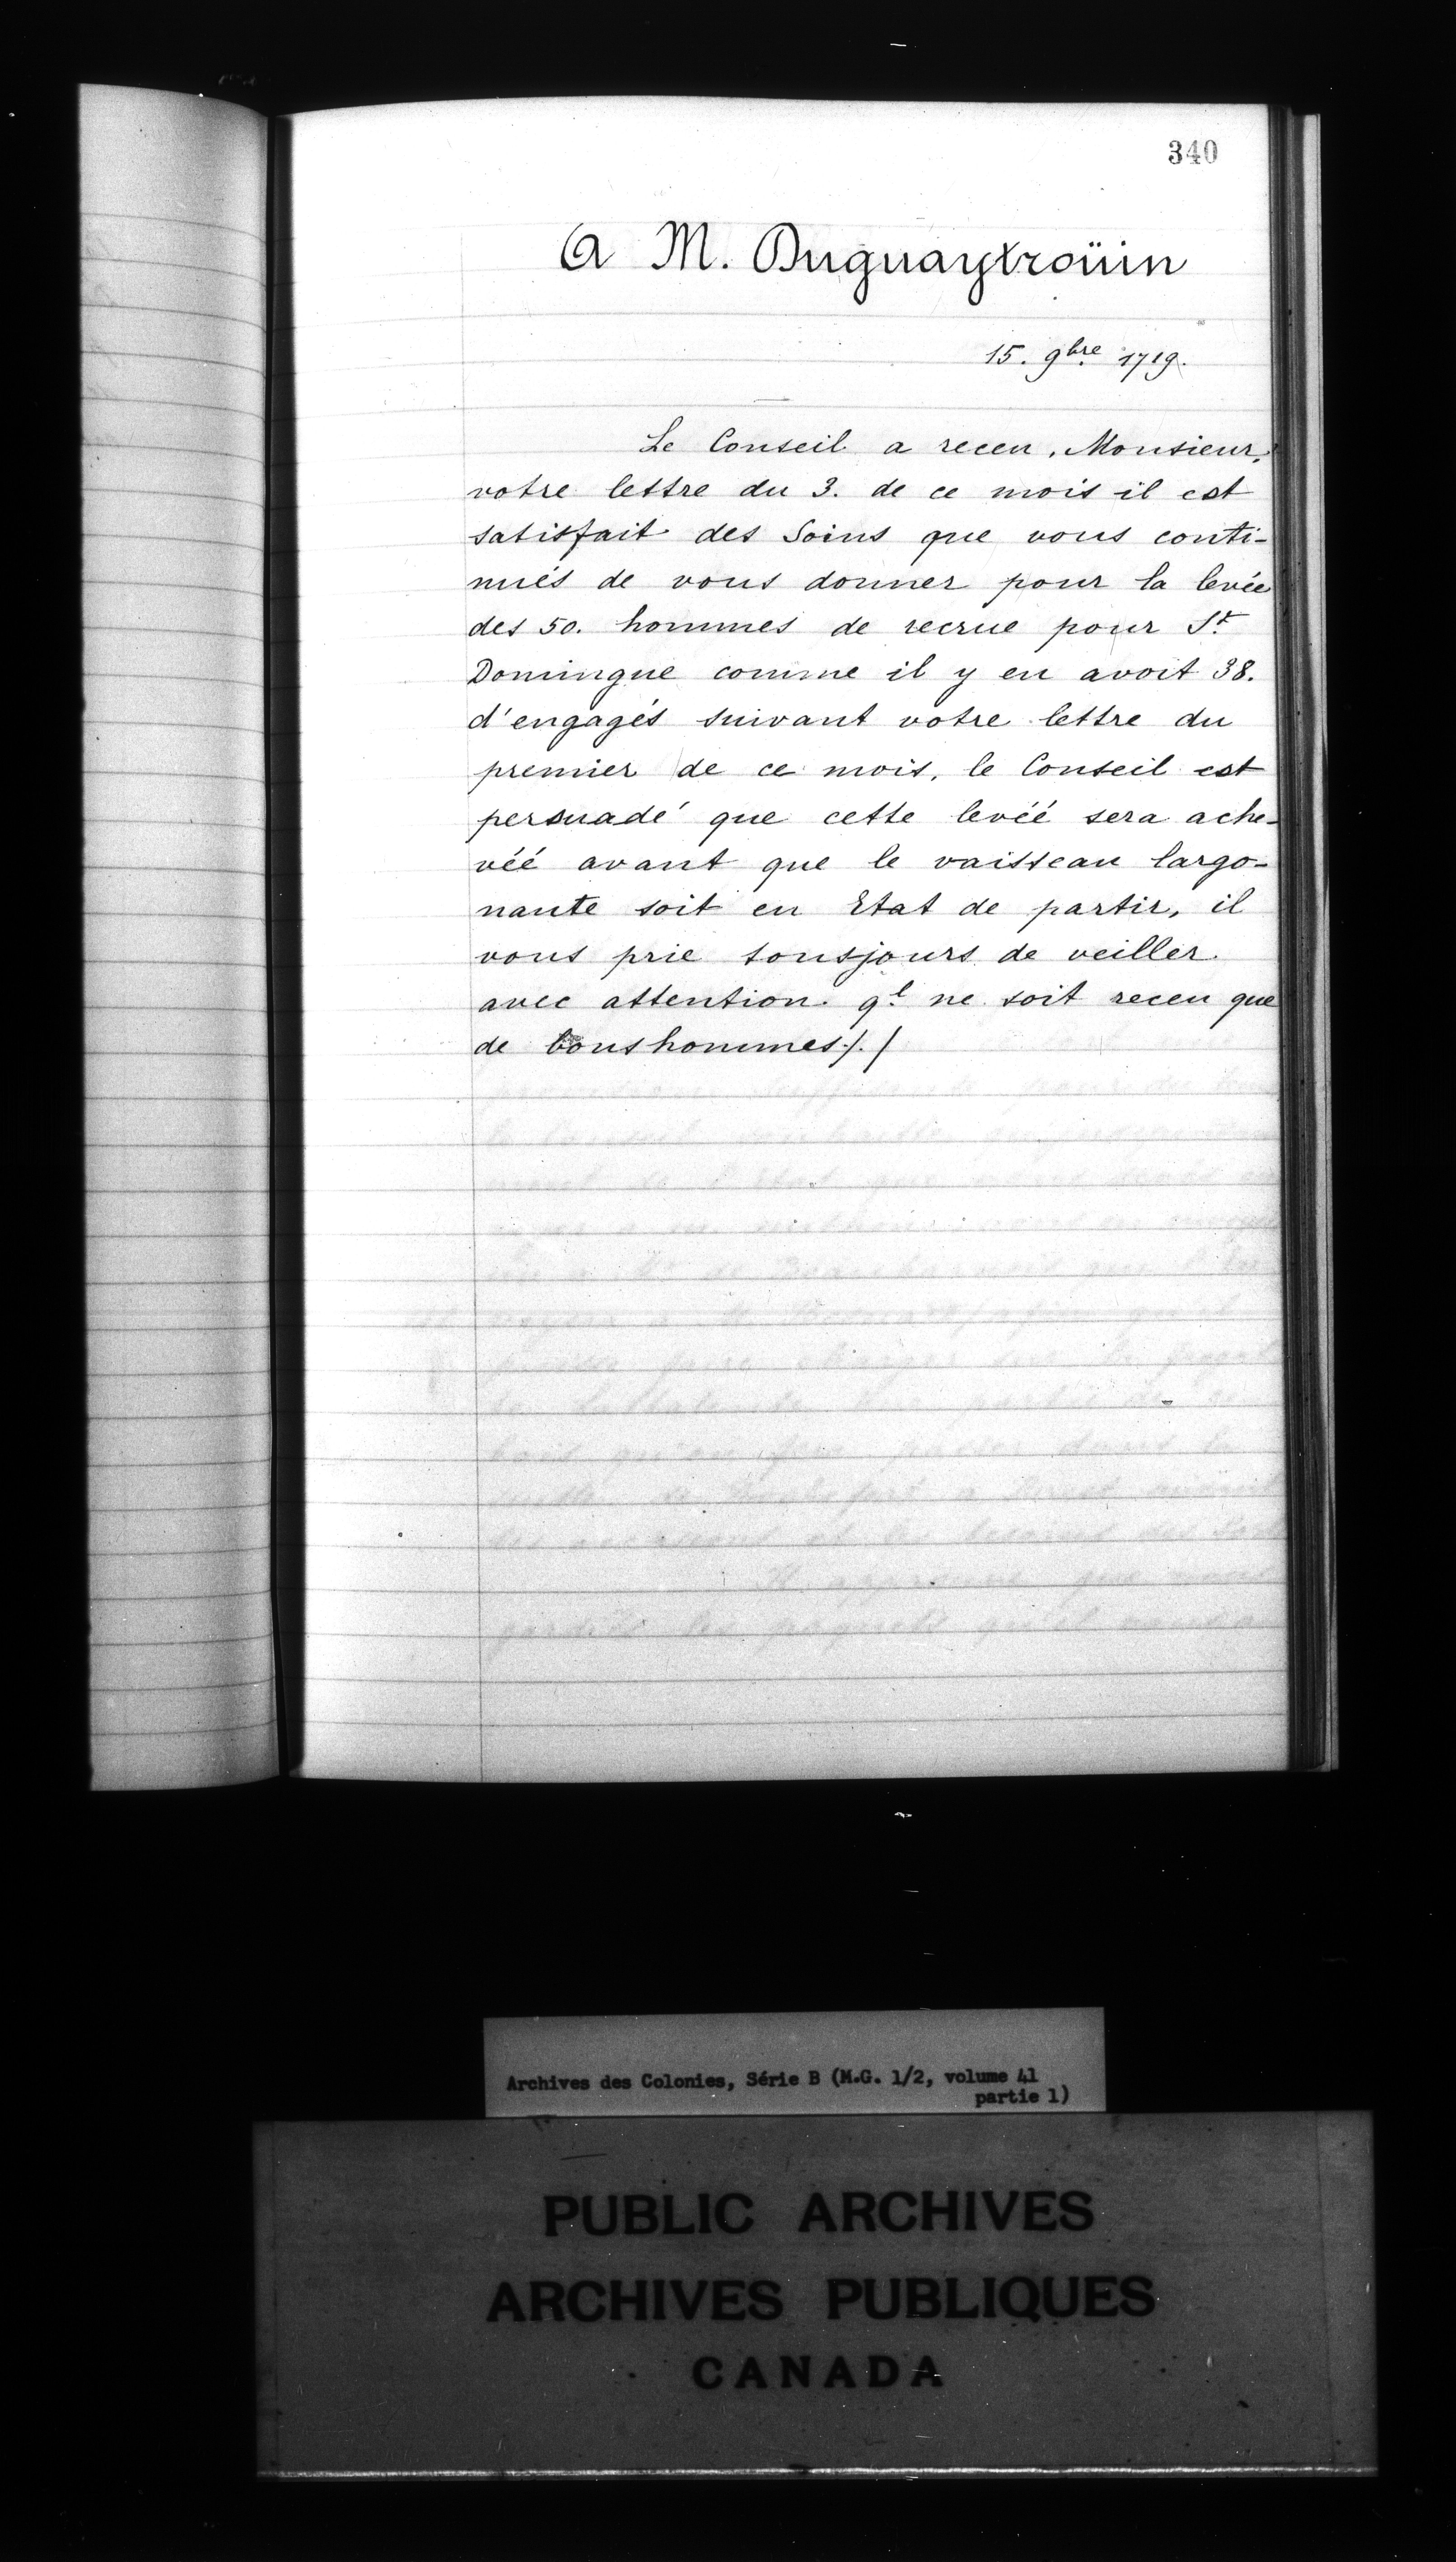 340
A M. Duguaytroüin
15. 9bre 1719.
Le Conseil a receu, Monsieur,
votre lettre du 3. de ce mois il est
satisfait des Soins que vous conti-
nués de vous donner pour la levée
des 50. hommes de recrue pour St.
Domingue comme il y en avoit 38.
d'engagés suivant votre lettre du
premier de ce mois, le Conseil est
persuadé que cette levéé sera ache-
véé avant que le vaisseau largo-
nante soit en Etat de partir, il
vous prie tousjours de veiller
avec attention. ql. ne soit receu que
de bons hommes ./.
Archives des Colonies, Série B (M.G. 1/2, volume 41
partie 1)
PUBLIC ARCHIVES
ARCHIVES PUBLIQUES
CANADA